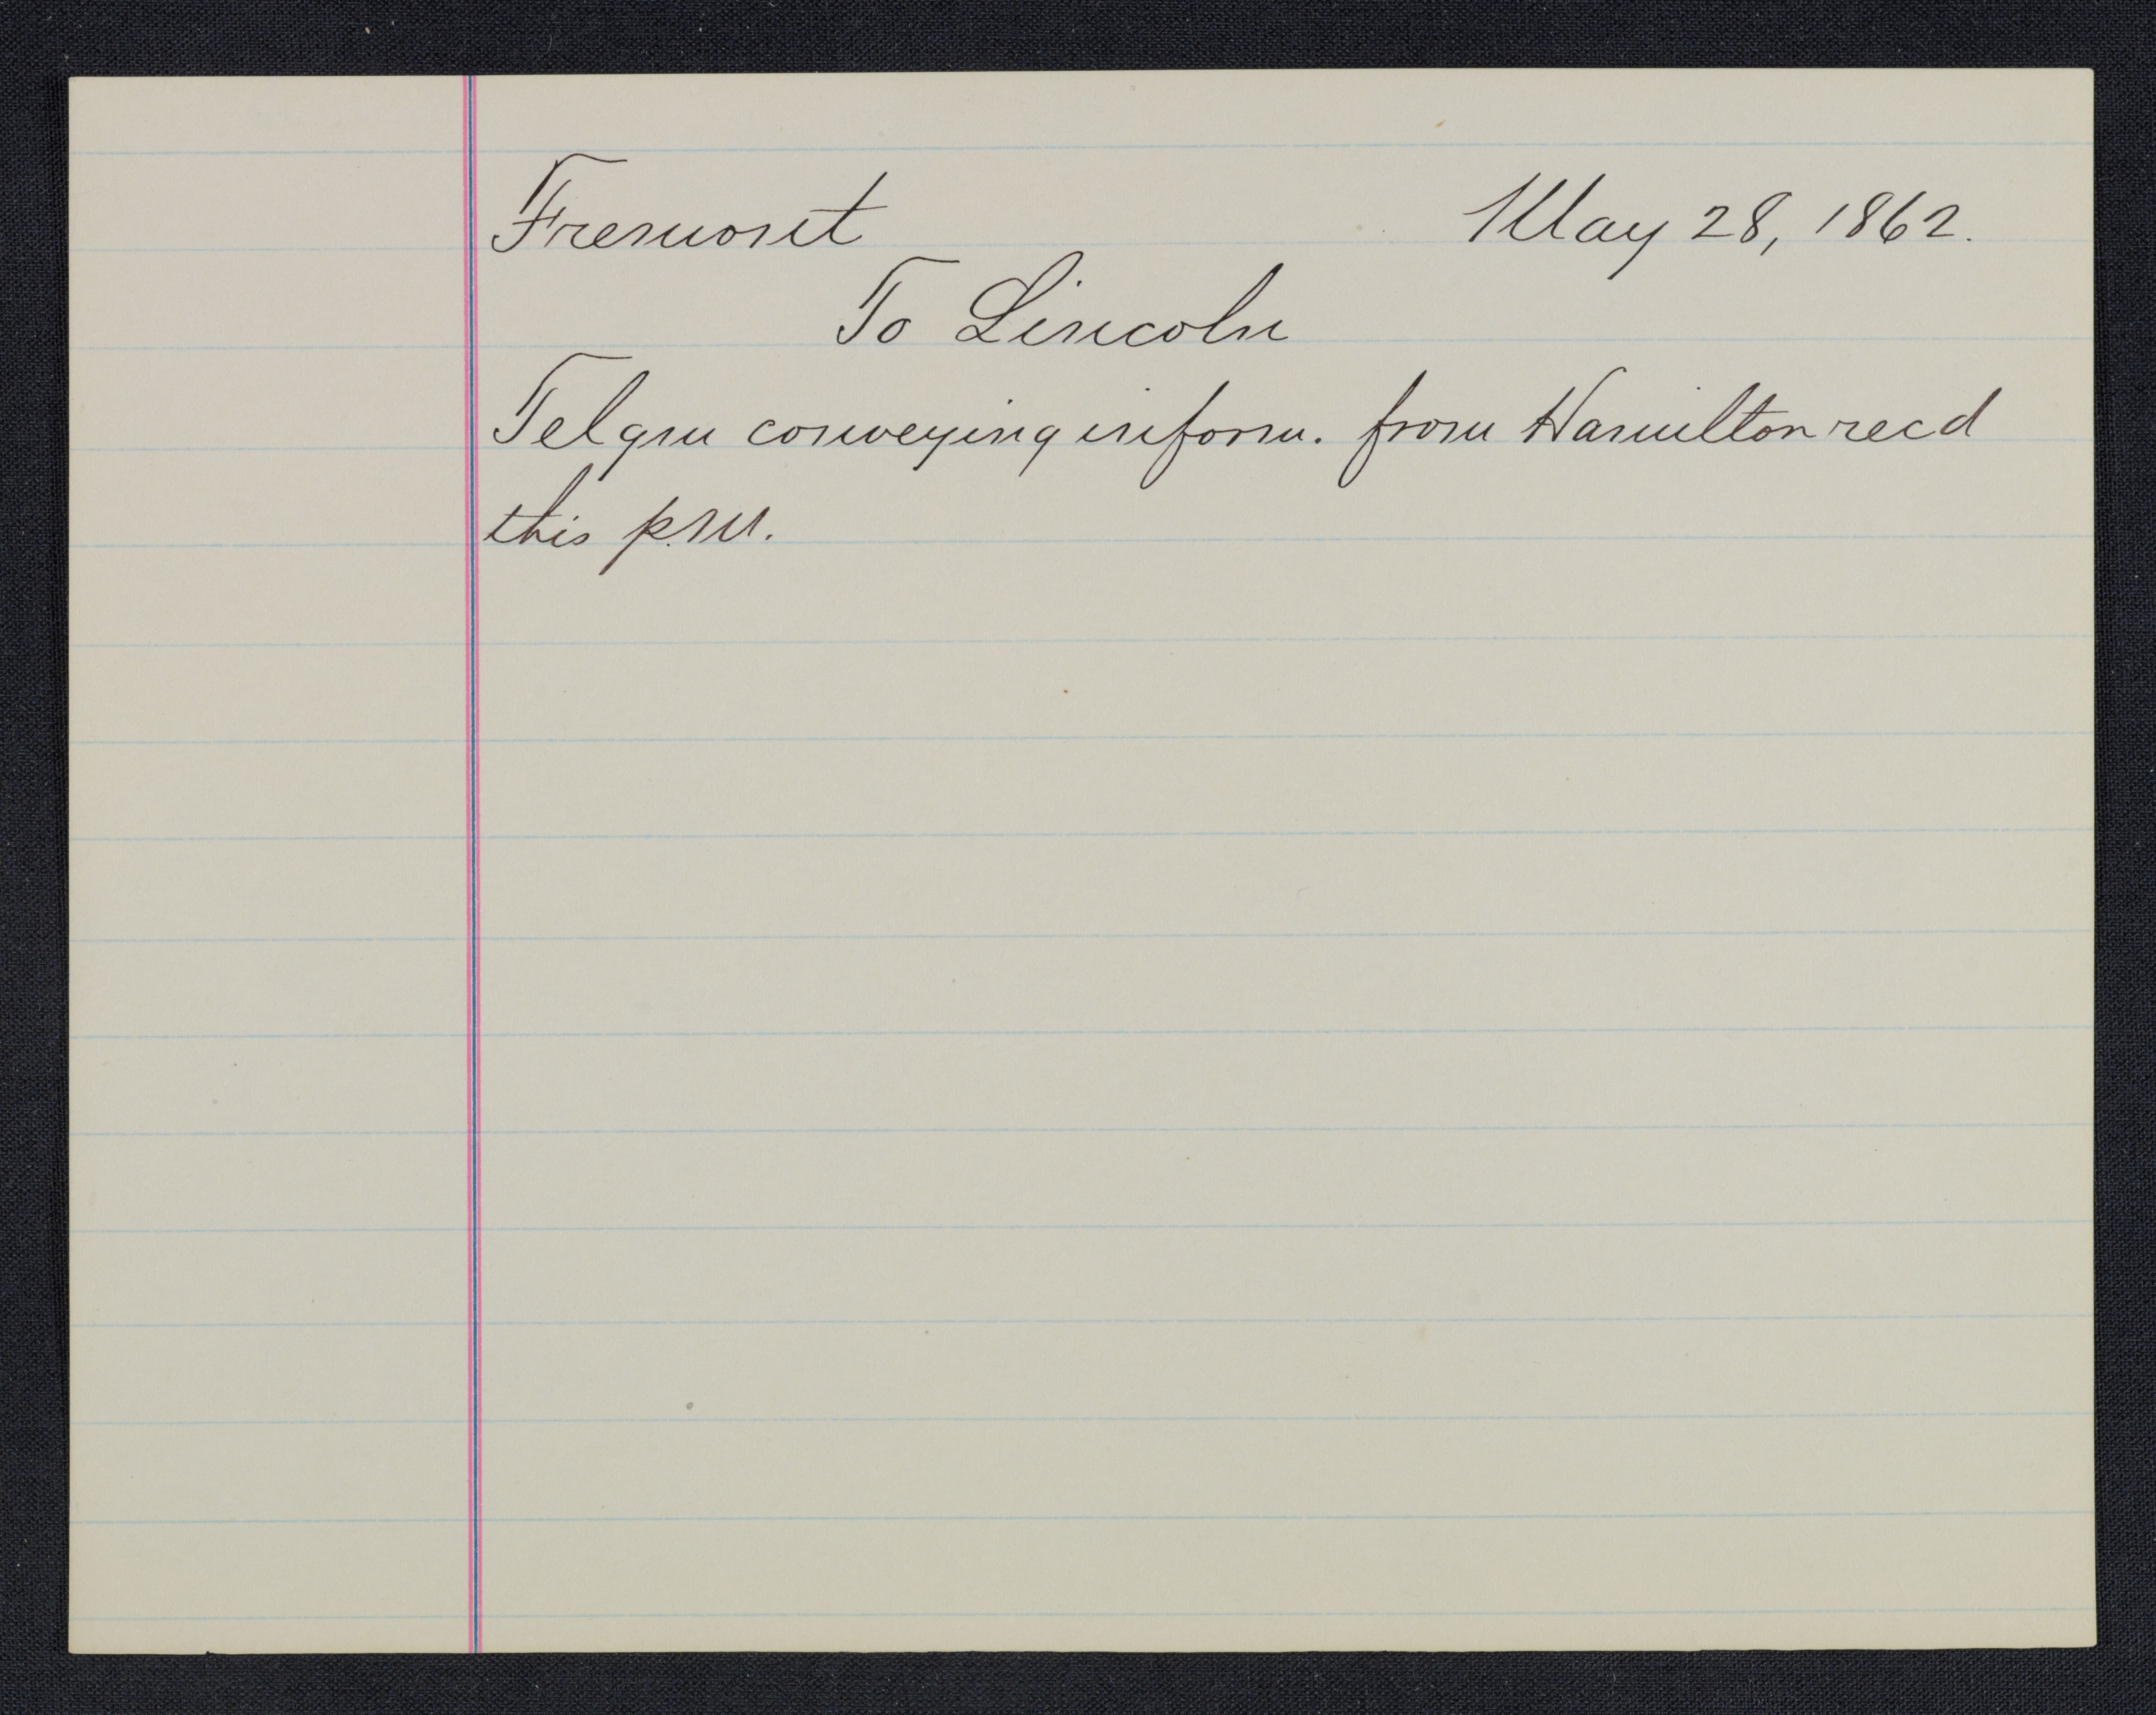 Fremont May 28, 1862.
To Lincoln
Telgm conveying inform. from Hamilton recd
this p.m.